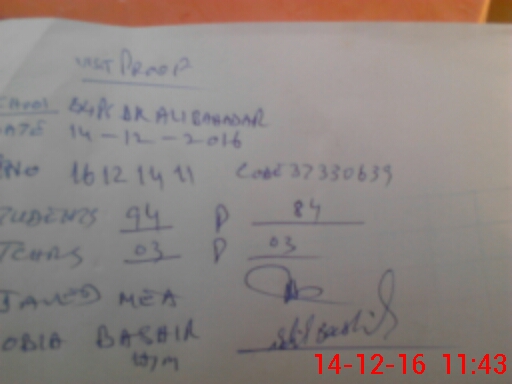 VISIT PROOF
SCHOOL GGPS DR ALI BAHADAR
DATE 14-12-2016
NO 16121411 CODE 37330639
STUDENTS 94 P 84
TCHRS 03 P 03
JAVED MEA
OBIA BASHIR
14-12-16 11:43